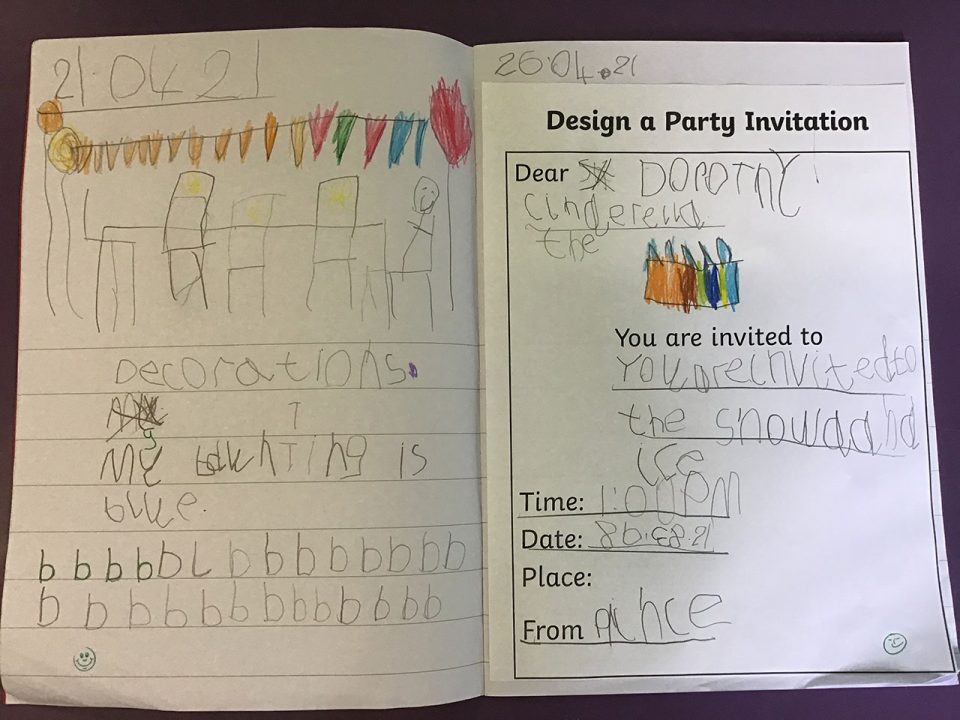 21 04 21
Decorations.
T
My bunting is
blue.
b b b b b L b b b b b b b b
b b b b b b b b b b b b b
26.04.21
Design a Party Invitation
Dear DOROTHY
Cinderella
the
You are invited to
You are invited to
the snow and
ice
Time: 1:00PM
Date:
Place:
From